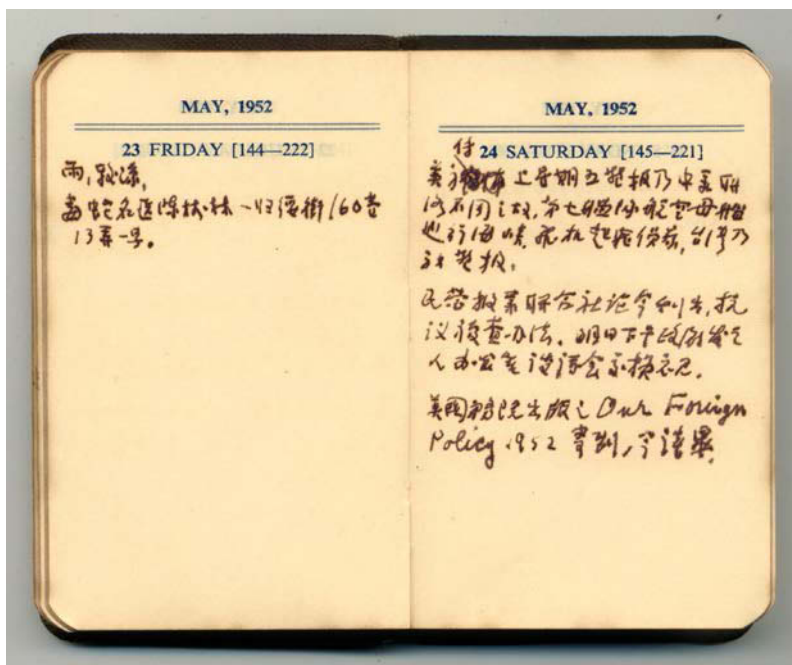 MAY, 1952
23 FRIDAY [144—222]
雨,較涼,
毒蛇名医陳扶林-归绥街160巷
13弄-号。
MAY, 1952
24 SATURDAY [145—221]
美方 上星期五警报乃中美联
络不周之故,第七艦队航空母艦
巡行海峡,飛机起飛侦察,台湾乃
警报。
民营报業联合社论今刊出,抗
议 办法。明日下午政府发言
人办公室谈话会交换意见。
美国务院出版之 Our Foreign
Policy 1952 書刊,今读畢。